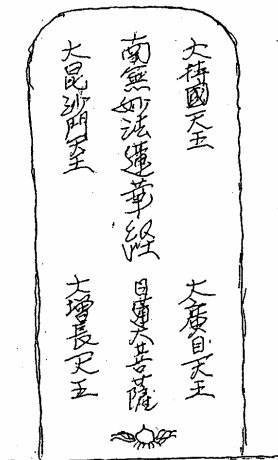 大持國天王
大廣目天王
南無妙法蓮華経
日蓮大菩薩
大毘沙門天王
大増長天王